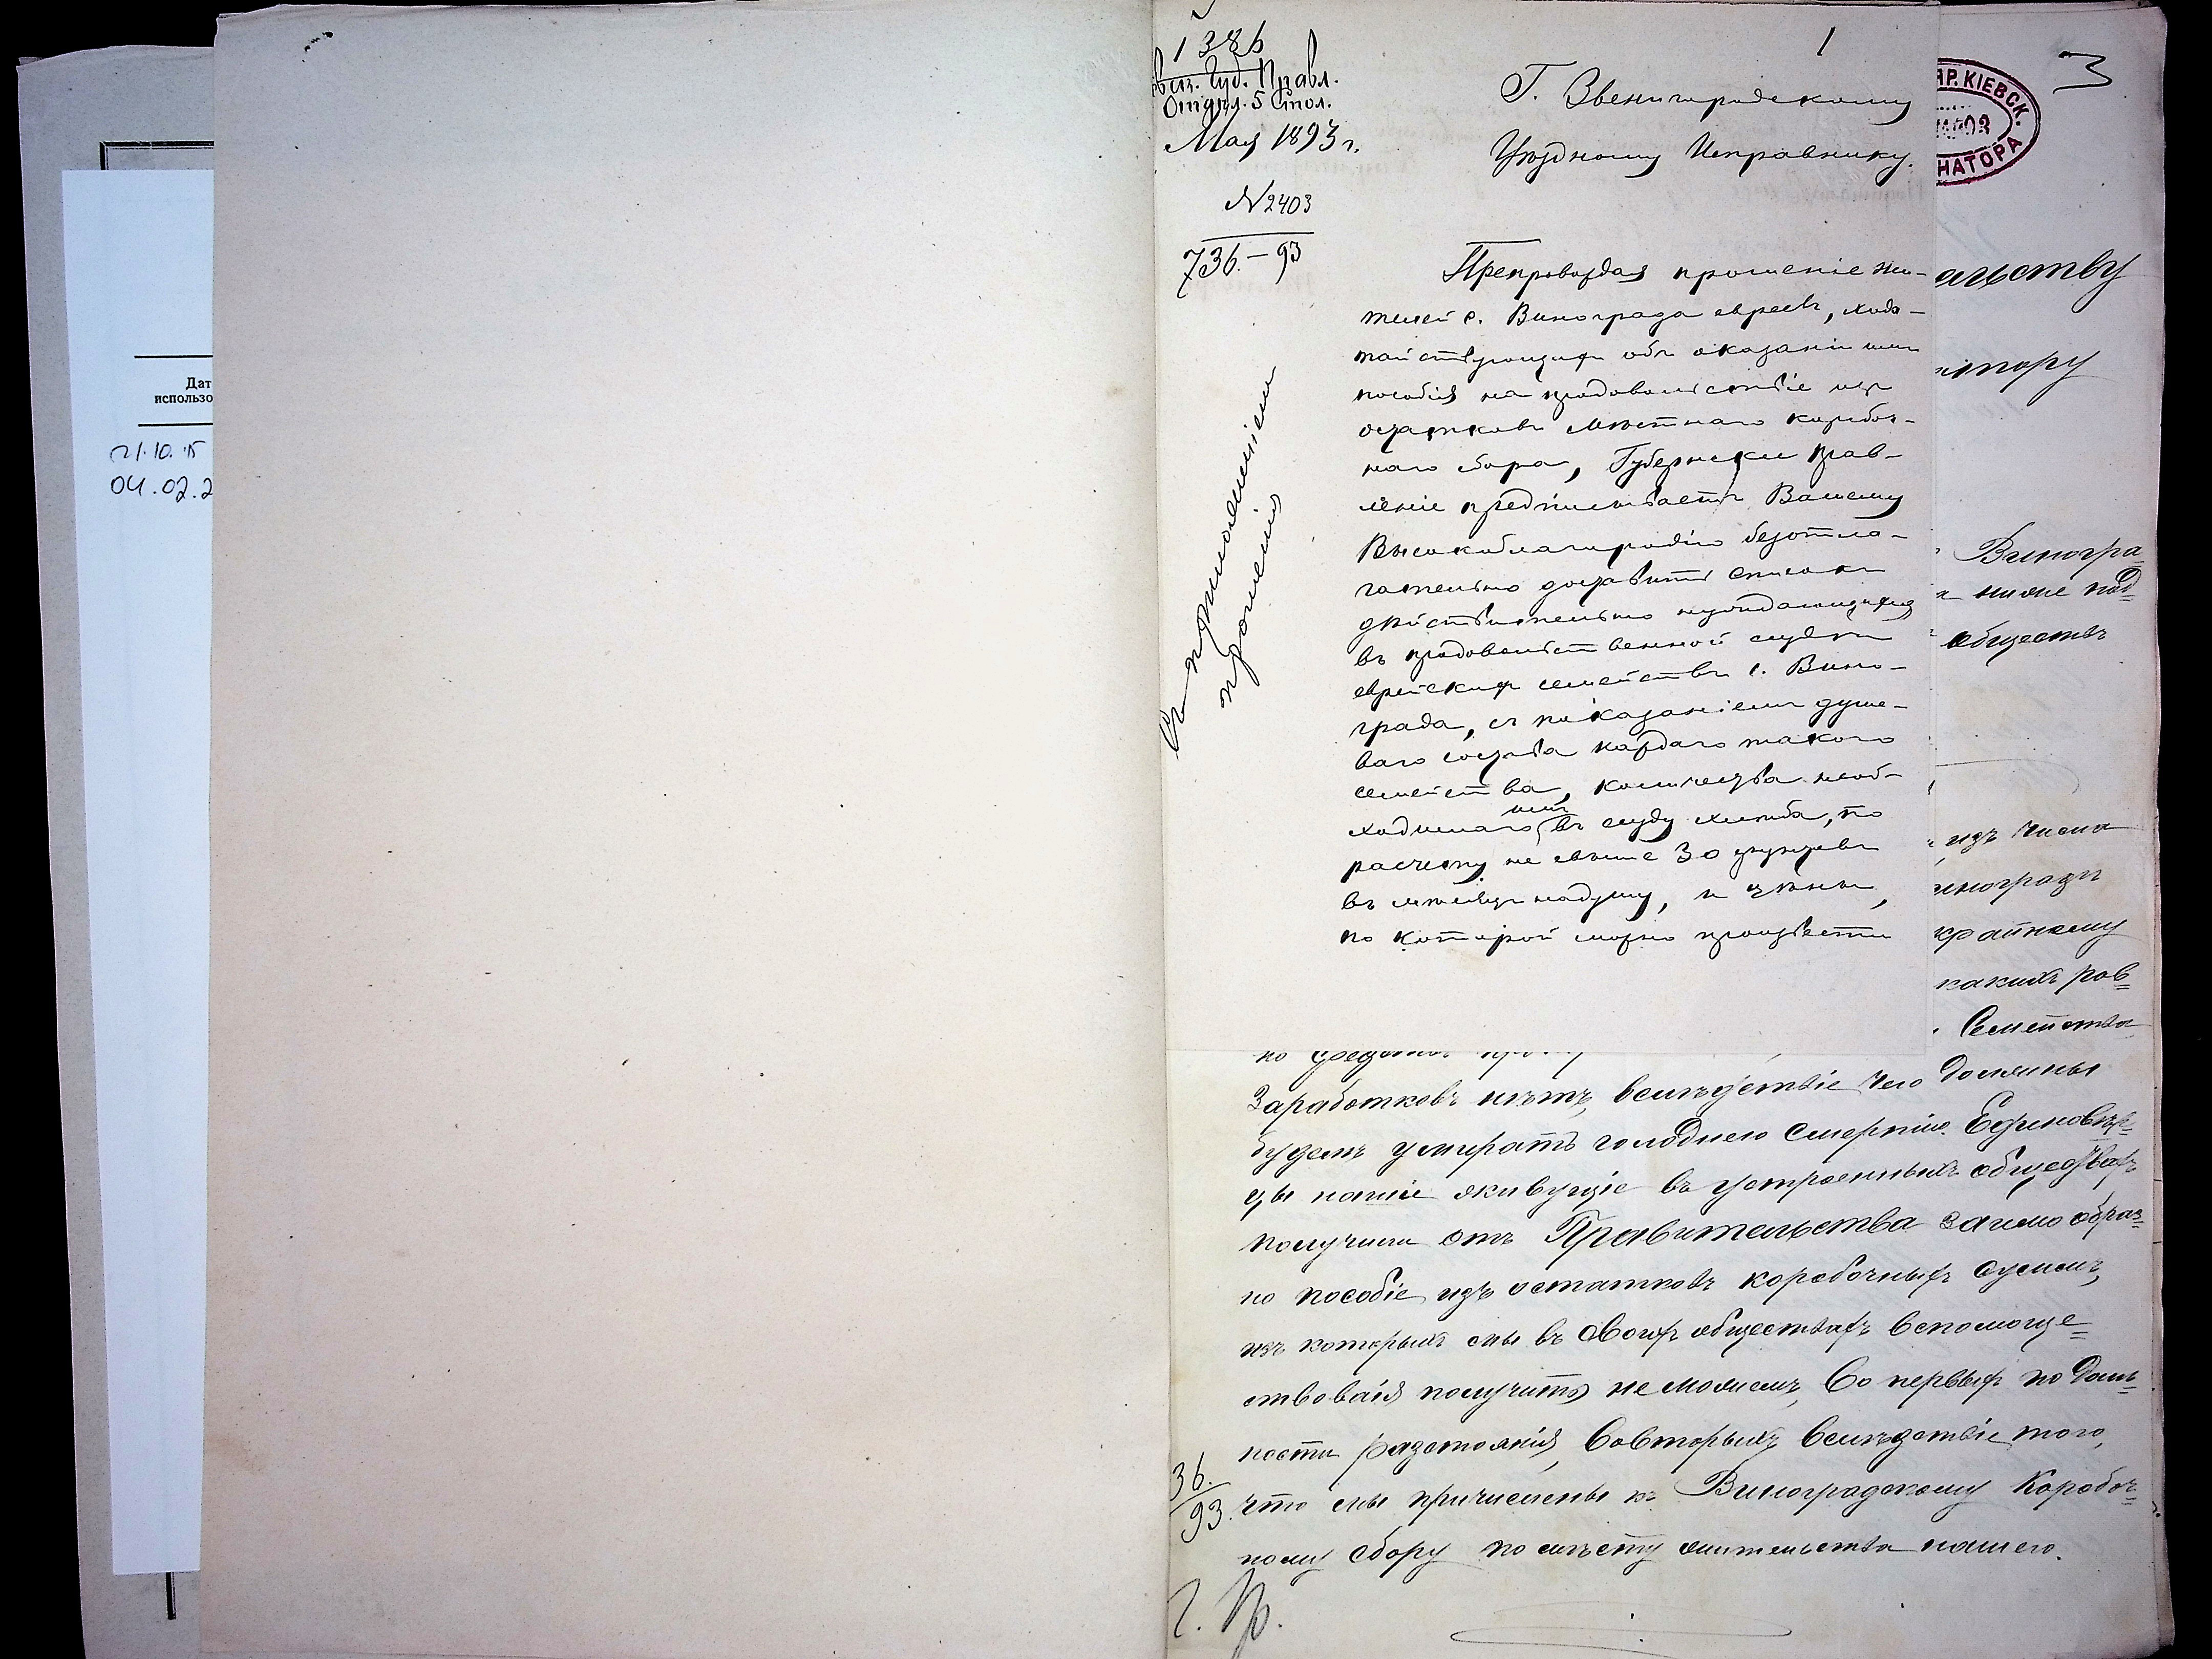 Дат
использо
21.10.15
04.02.2
1386
Губ. Правл.
Отдѣл. 5 Стол.
Мая 1893 г.
N 2403
736.-93
Съ приложеніемъ
прошенія
1
Г. Звенигородскому
Уѣздному Исправнику.
Препровождая прошеніе жи-
телей с. Винограда евреевъ, хода-
тайствующихъ объ оказаніи имъ
пособія на продовольствіе изъ
остатковъ мѣстнаго коробоч-
наго сбора, Губернское Прав-
леніе предписываетъ Вашему
Высокоблагородію безотла-
гательно доставить списокъ
дѣйствительно нуждающихся
въ продовольственной ссудѣ
еврейскихъ семействъ с. Вино-
града, съ показаніемъ душе-
ваго состава каждаго такого
семейства, количества необ-
ходимаго имъ въ ссуду хлѣба, по
расчету не свыше 30 фунтовъ
въ мѣсяцъ на душу, и цѣны,
по которой можно произвести
3
АР. КІЕВСК.
НАТОРА
ательству
атору
Виногра
ниже под=
обществъ
изъ числа
иноградъ
крайнему
какихъ ров=
Семейства
должны
по средства
Заработковъ нѣтъ, вслѣдствіе чего
будемъ умирать голоднею смертію. Единовѣр=
цы наши живущіе въ устроенныхъ обществахъ
получили отъ Правительства заимообраз=
но пособіе изъ остатковъ коробочныхъ суммъ,
изъ которыхъ мы въ своихъ обществахъ вспомоще=
ствованія получить не можемъ, Во первыхъ по даль=
ности разстоянія, Вовторыхъ вслѣдствіе того,
что мы причислены къ Виноградскому Коробоч=
ному сбору по мѣсту жительства нашего.
36.
93.